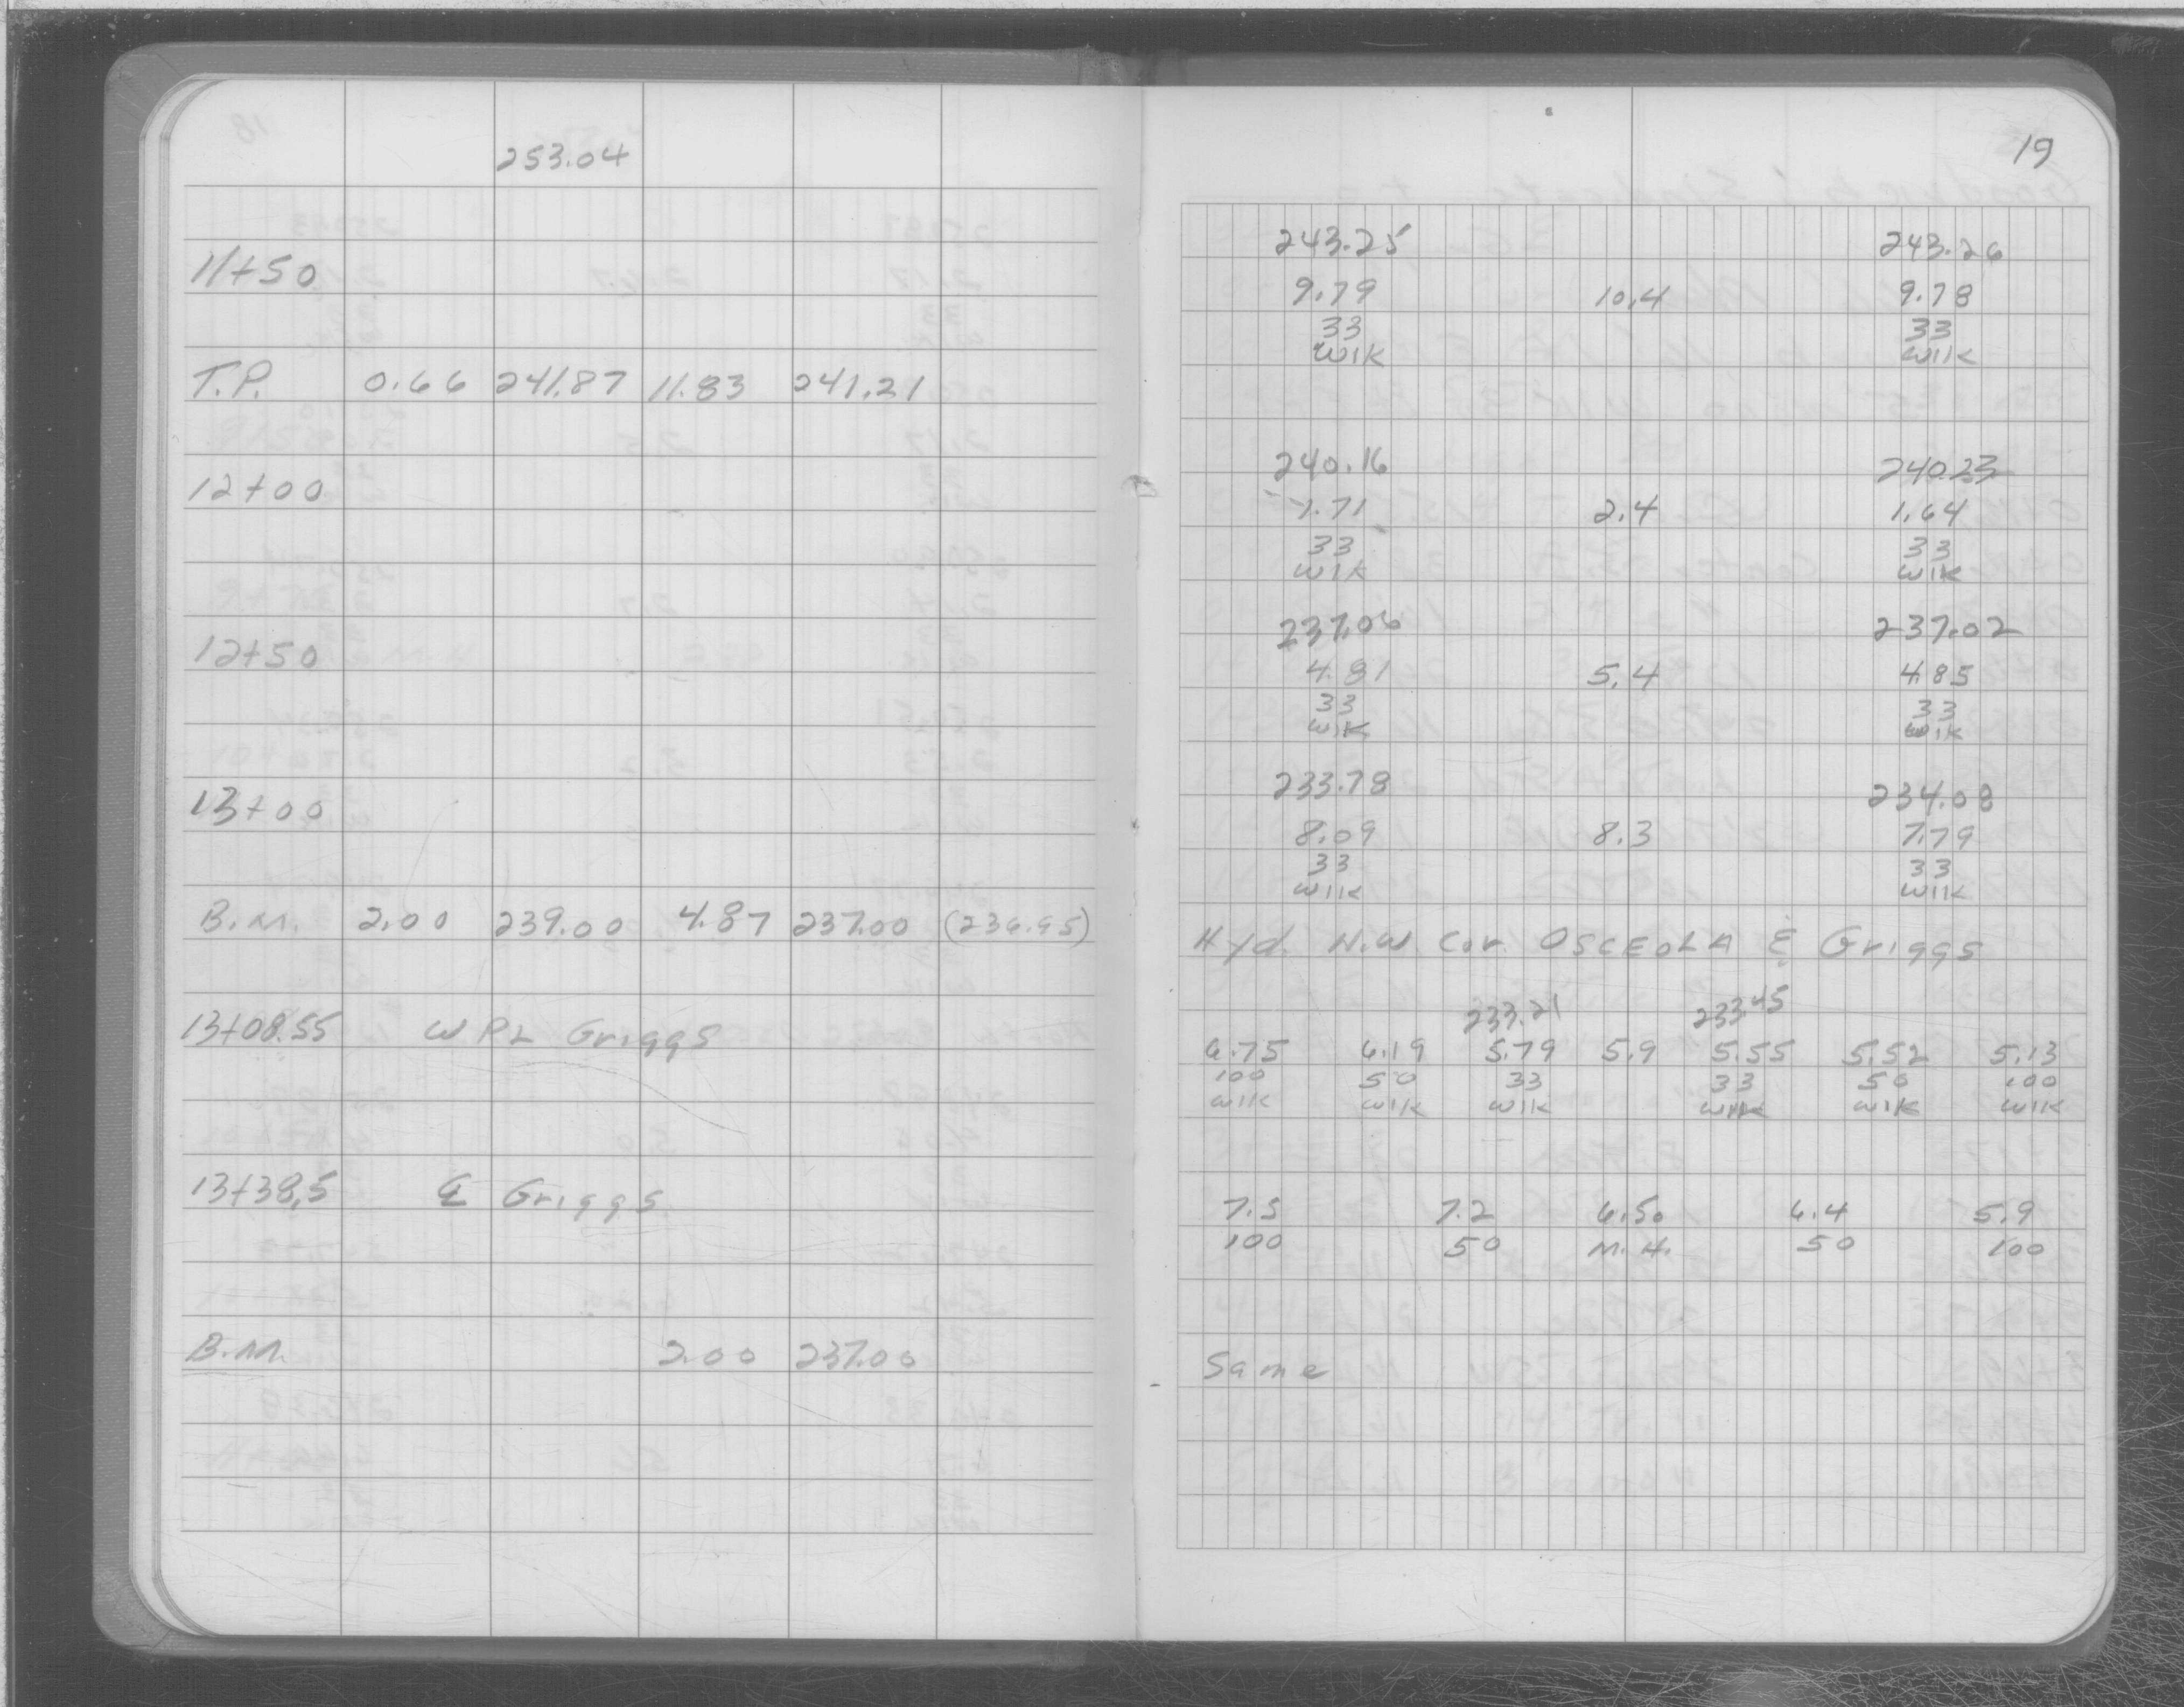 253.04
11+50
T.P. 0.66 241.87 11.83 241.21
12+00
12+50
13+00
B.M. 2.00 239.00 4.87 237.00 (236.95)
13+08.55 W PL Griggs
13+38.5 ℄ Griggs
B.M. 2.00 237.00
19
243.25 243.26
9.79 10.4 9.78
33 33
WIK WIK
240.16 240.23
1.71 2.4 1.64
33 33
WIK WIK
237.06 237.02
4.81 5.4 4.85
33 33
WIK WIK
233.78 234.08
8.09 8.3 7.79
33 33
WIK WIK
Hyd. N.W. Cor. OSCEOLA & Griggs
233.21 233.45
6.75 6.19 5.79 5.9 5.55 5.52 5.13
100 50 33 33 50 100
WIK WIK WIK WIK WIK WIK
7.5 7.2 6.50 6.4 5.9
100 50 M.H. 50 100
Same